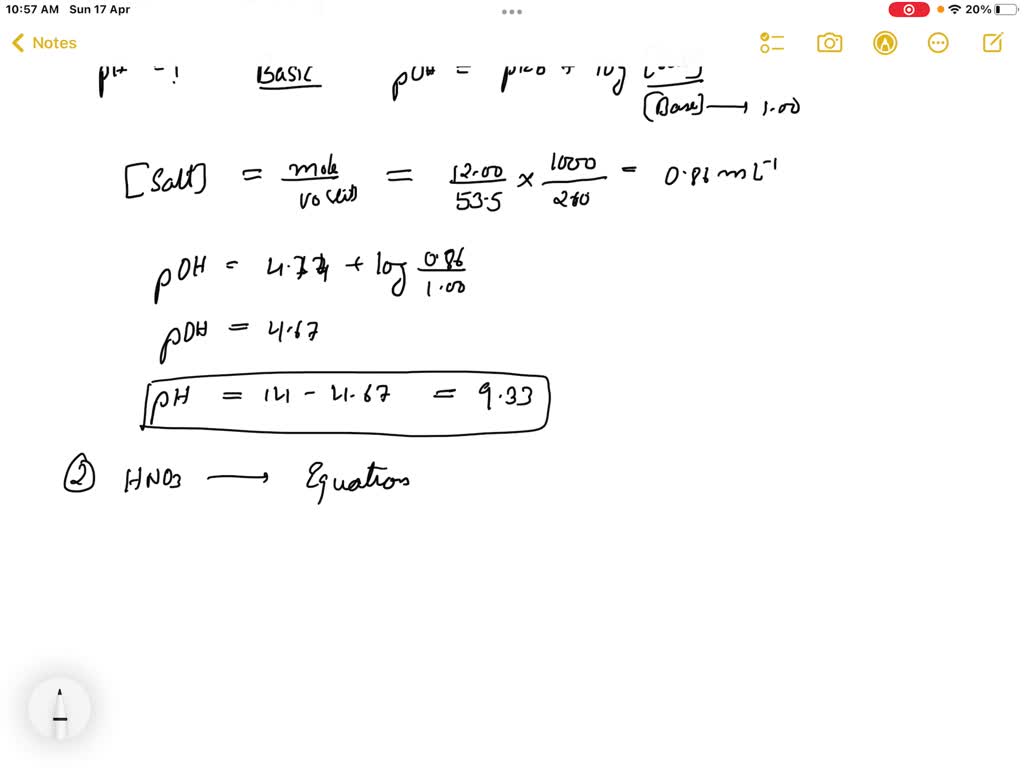 10:57 AM Sun 17 Apr
20%
Notes
pH = ? Basic pOH = pKb + log
[Base] → 1.00
[Salt] = mole / vo (lit) = 12.00 / 53.5 × 1000 / 260 = 0.86 m L⁻¹
pOH = 4.74 + log 0.86 / 1.00
pOH = 4.67
pH = 14 - 4.67 = 9.33
② HNO3 → Equation